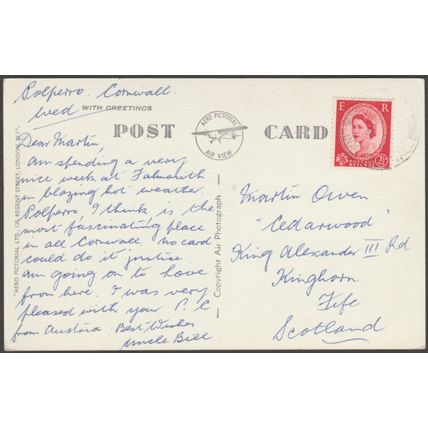 Polperro. Cornwall
Wed
WITH GREETINGS
POST CARD
AERO PICTORIAL
AIR VIEW
"AERO PICTORIAL LTD., 137, REGENT STREET, LONDON, W.1".
Copyright Air Photograph
Dear Martin,
Am spending a very
nice week at Falmouth
in blazing hot weather.
Polperro, I think is the
most fascinating place
in all Cornwall no card
could do it justice
am going on to Looe
from here. I was very
pleased with your P.C
from Austria. Best Wishes
Uncle Bill
E R
2½
Martin Owen
"Cedarwood"
King Alexander III Rd
Kinghorn
Fife
Scotland